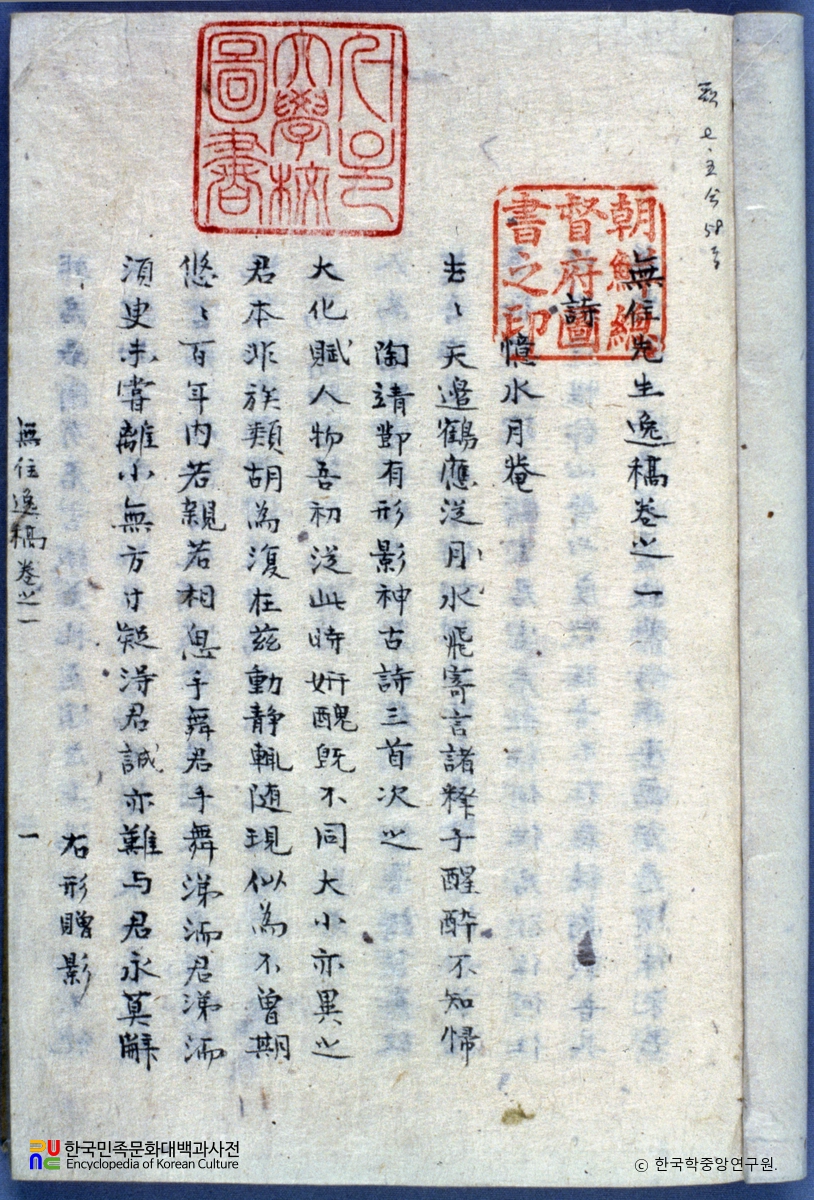 朝鮮總
督府圖
書之印
서울
大學校
圖書
無住先生逸稿卷之一
詩
憶水月菴
去〻天邉鶴應従月水飛寄言諸释子醒酔不知帰
陶靖節有形影神古詩三首次之
大化賦人物吾初従此時妍醜既不同大小亦異之
君本非族類胡為復在玆動静輒随現似為不曾期
悠〻百年内若親若相思手舞君手舞涕洏君涕洏
須臾未嘗離小無方寸疑得君誠亦難与君永莫辭
右形贈影
無住逸稿卷之一 一
한국민족문화대백과사전
Encyclopedia of Korean Culture
ⓒ 한국학중앙연구원.